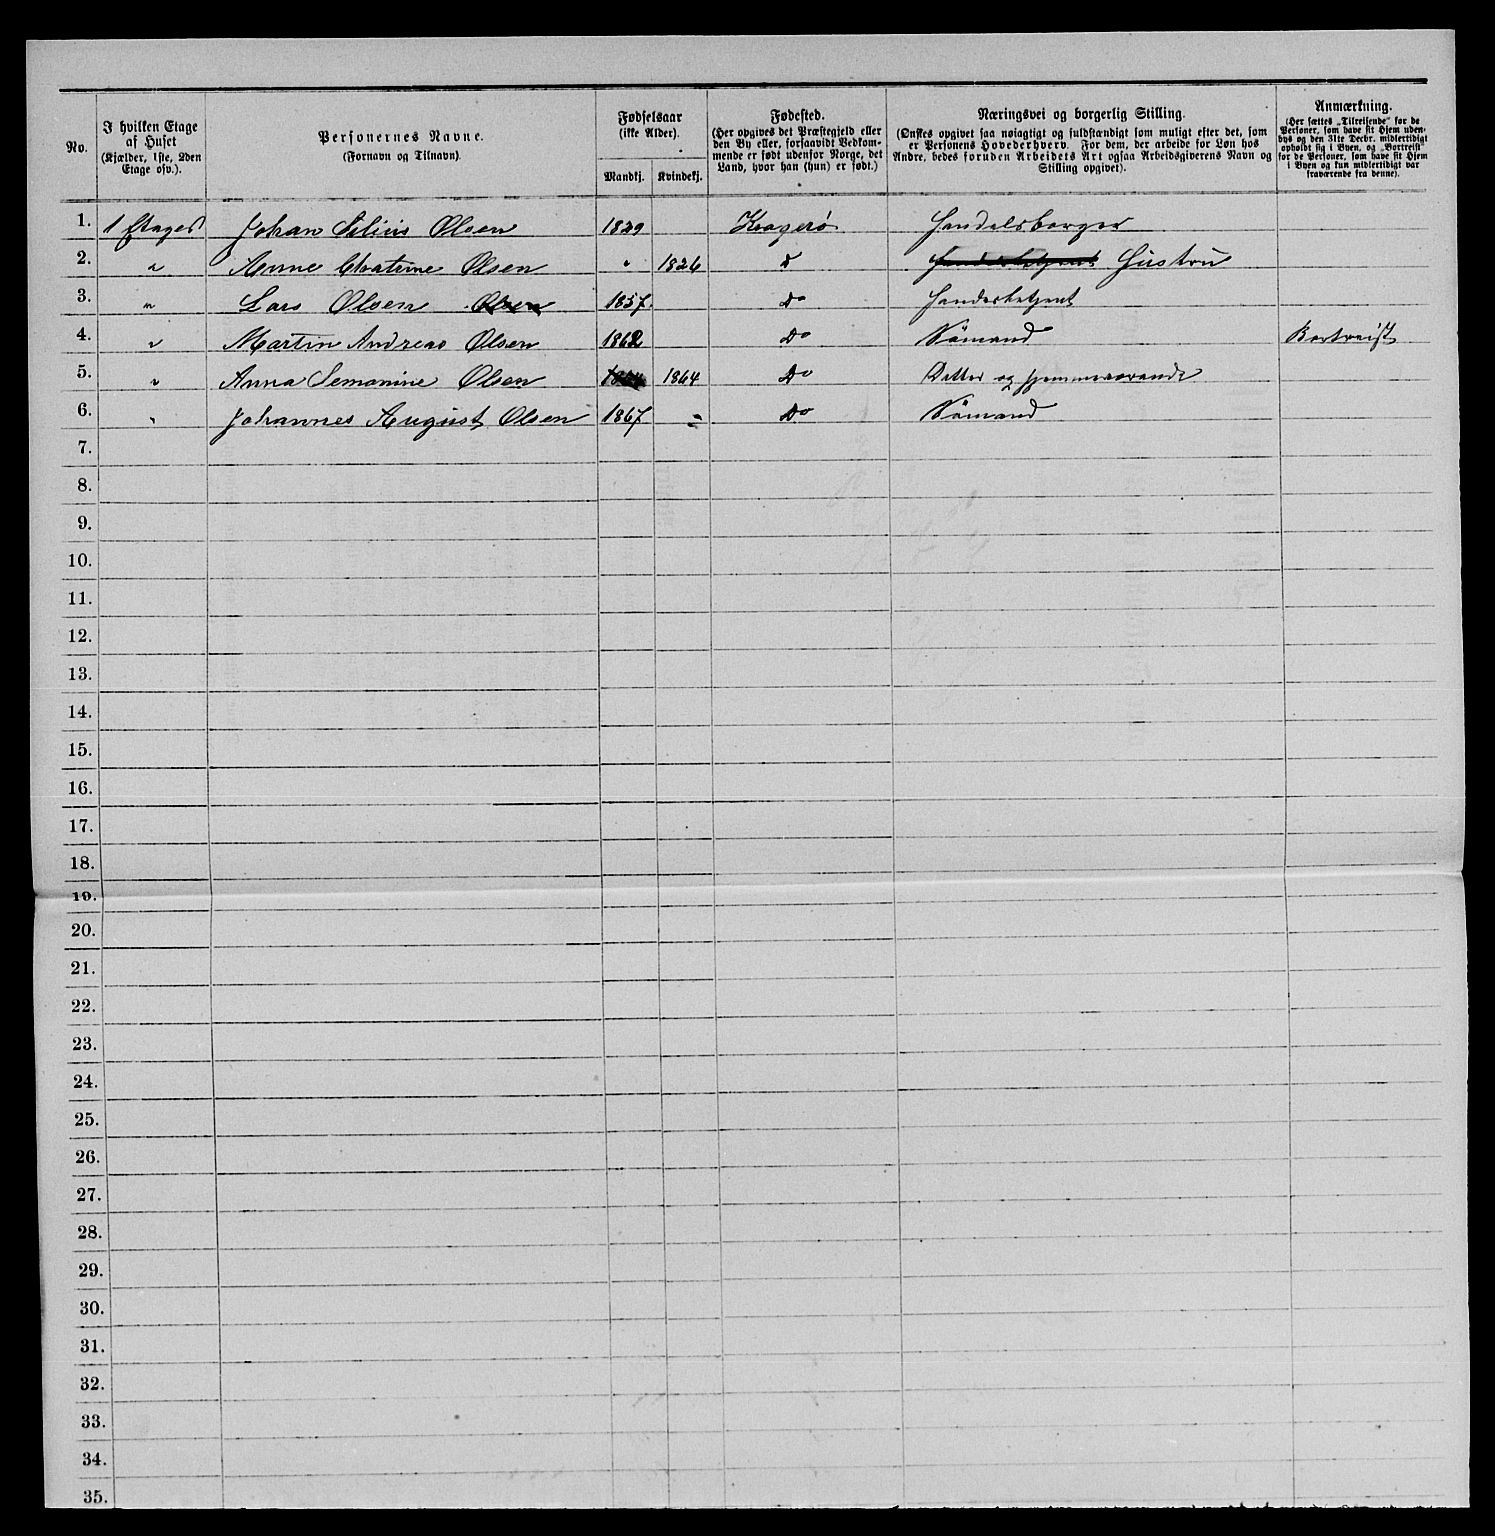 No.
I hvilken Etage
af Huset
(Kjælder, 1ste, 2den
Etage osv.).
Personernes Navne.
(Fornavn og Tilnavn).
Fødselsaar
(ikke Alder).
Mandkj. Kvindekj.
Fødested.
(Her opgives det Præstegjeld eller
den By eller, forsaavidt Vedkom-
mende er født udenfor Norge, det
Land, hvor han (hun) er født.)
Næringsvei og borgerlig Stilling.
(Ønskes opgivet saa nøiagtigt og fuldstændigt som muligt efter det, som
er Personens Hovederhverv. For dem, der arbeide for Løn hos
Andre, bedes foruden Arbeidets Art ogsaa Arbeidsgiverens Navn og
Stilling opgivet).
Anmærkning.
(Her sættes „Tilreisende“ for de
Personer, som have sit Hjem uden-
bys og den 31te Decbr. midlertidigt
opholdt sig i Byen, og „Bortreist“
for de Personer, som have sit Hjem
i Byen og kun midlertidigt var
fraværende fra denne).
1. 1 Etages Johan Olsen 1829 Kragerø Handelsborger
2. " Anne Olsen " 1826 Do Hustru
3. " Lars Olsen Olsen 1857 Do
4. " Martin Andreas Olsen 1862 Do Sömand Bortreist
5. " Anna Semonine Olsen 1864 Do Datter og hjemmeværende
6. " Johannes August Olsen 1867 = Do Sömand
7.
8.
9.
10.
11.
12.
13.
14.
15.
16.
17.
18.
19.
20.
21.
22.
23.
24.
25.
26.
27.
28.
29.
30.
31.
32.
33.
34.
35.